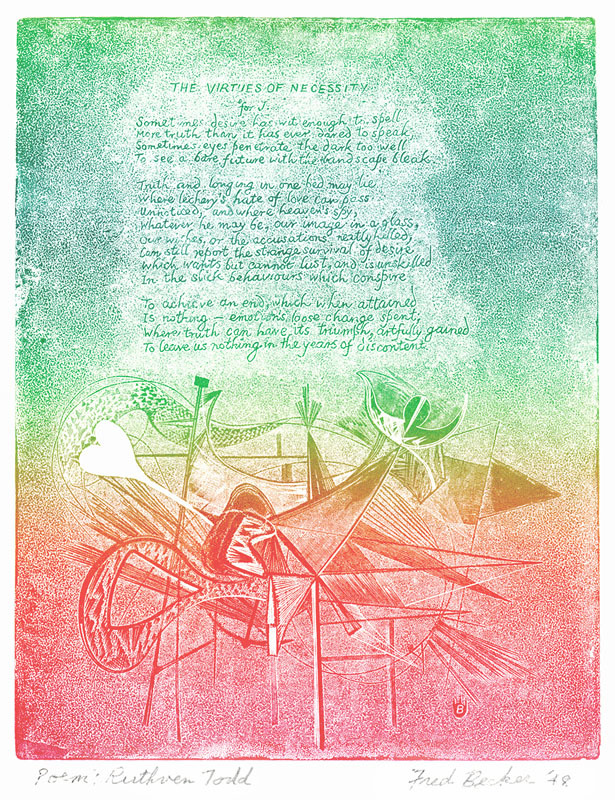 THE VIRTUES OF NECESSITY
for J.
Sometimes desire has wit enough to spell
More truth than it has ever dared to speak,
Sometimes eyes penetrate the dark too well
To see a bare future with the landscape bleak.
Truth and longing in one bed may lie
Where lechery's hate of love can pass
Unnoticed, and where heaven's spy,
Whatever he may be, our image in a glass,
Our wishes, or the accusations neatly killed,
Can still report the strange survival of desire
Which wants but cannot lust, and is unskilled
In the slick behaviours which conspire
To achieve an end, which when attained
Is nothing — emotion's loose change spent,
Where truth can have its triumph, artfully gained
To leave us nothing in the years of discontent
B
Poem: Ruthven Todd
Fred Becker '48